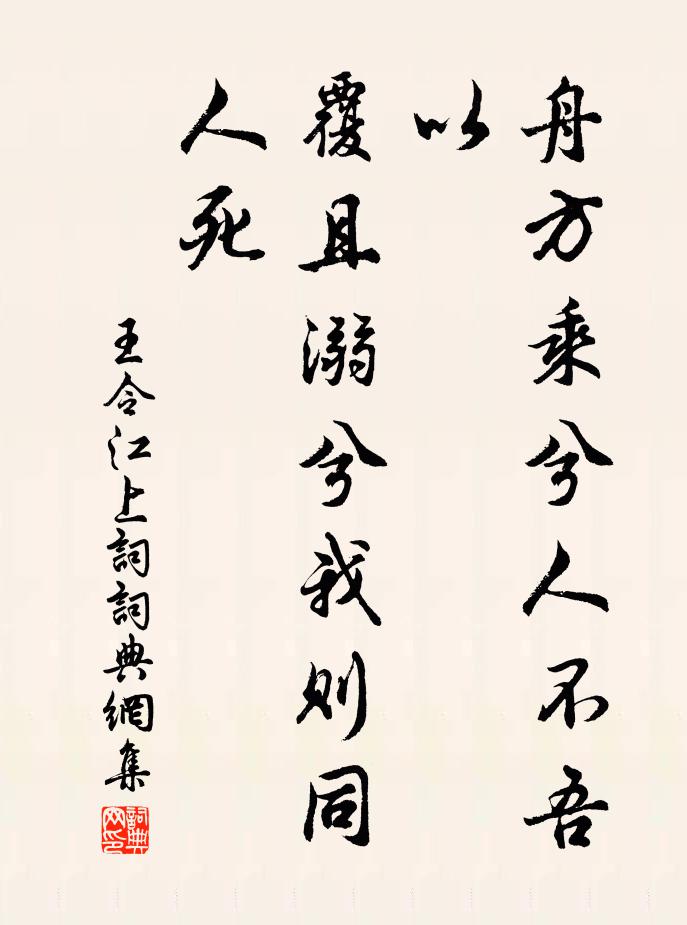 舟方乘兮人不吾
以
覆且溺兮我则同
人死
王令江上詞詞典網集
詞典網印